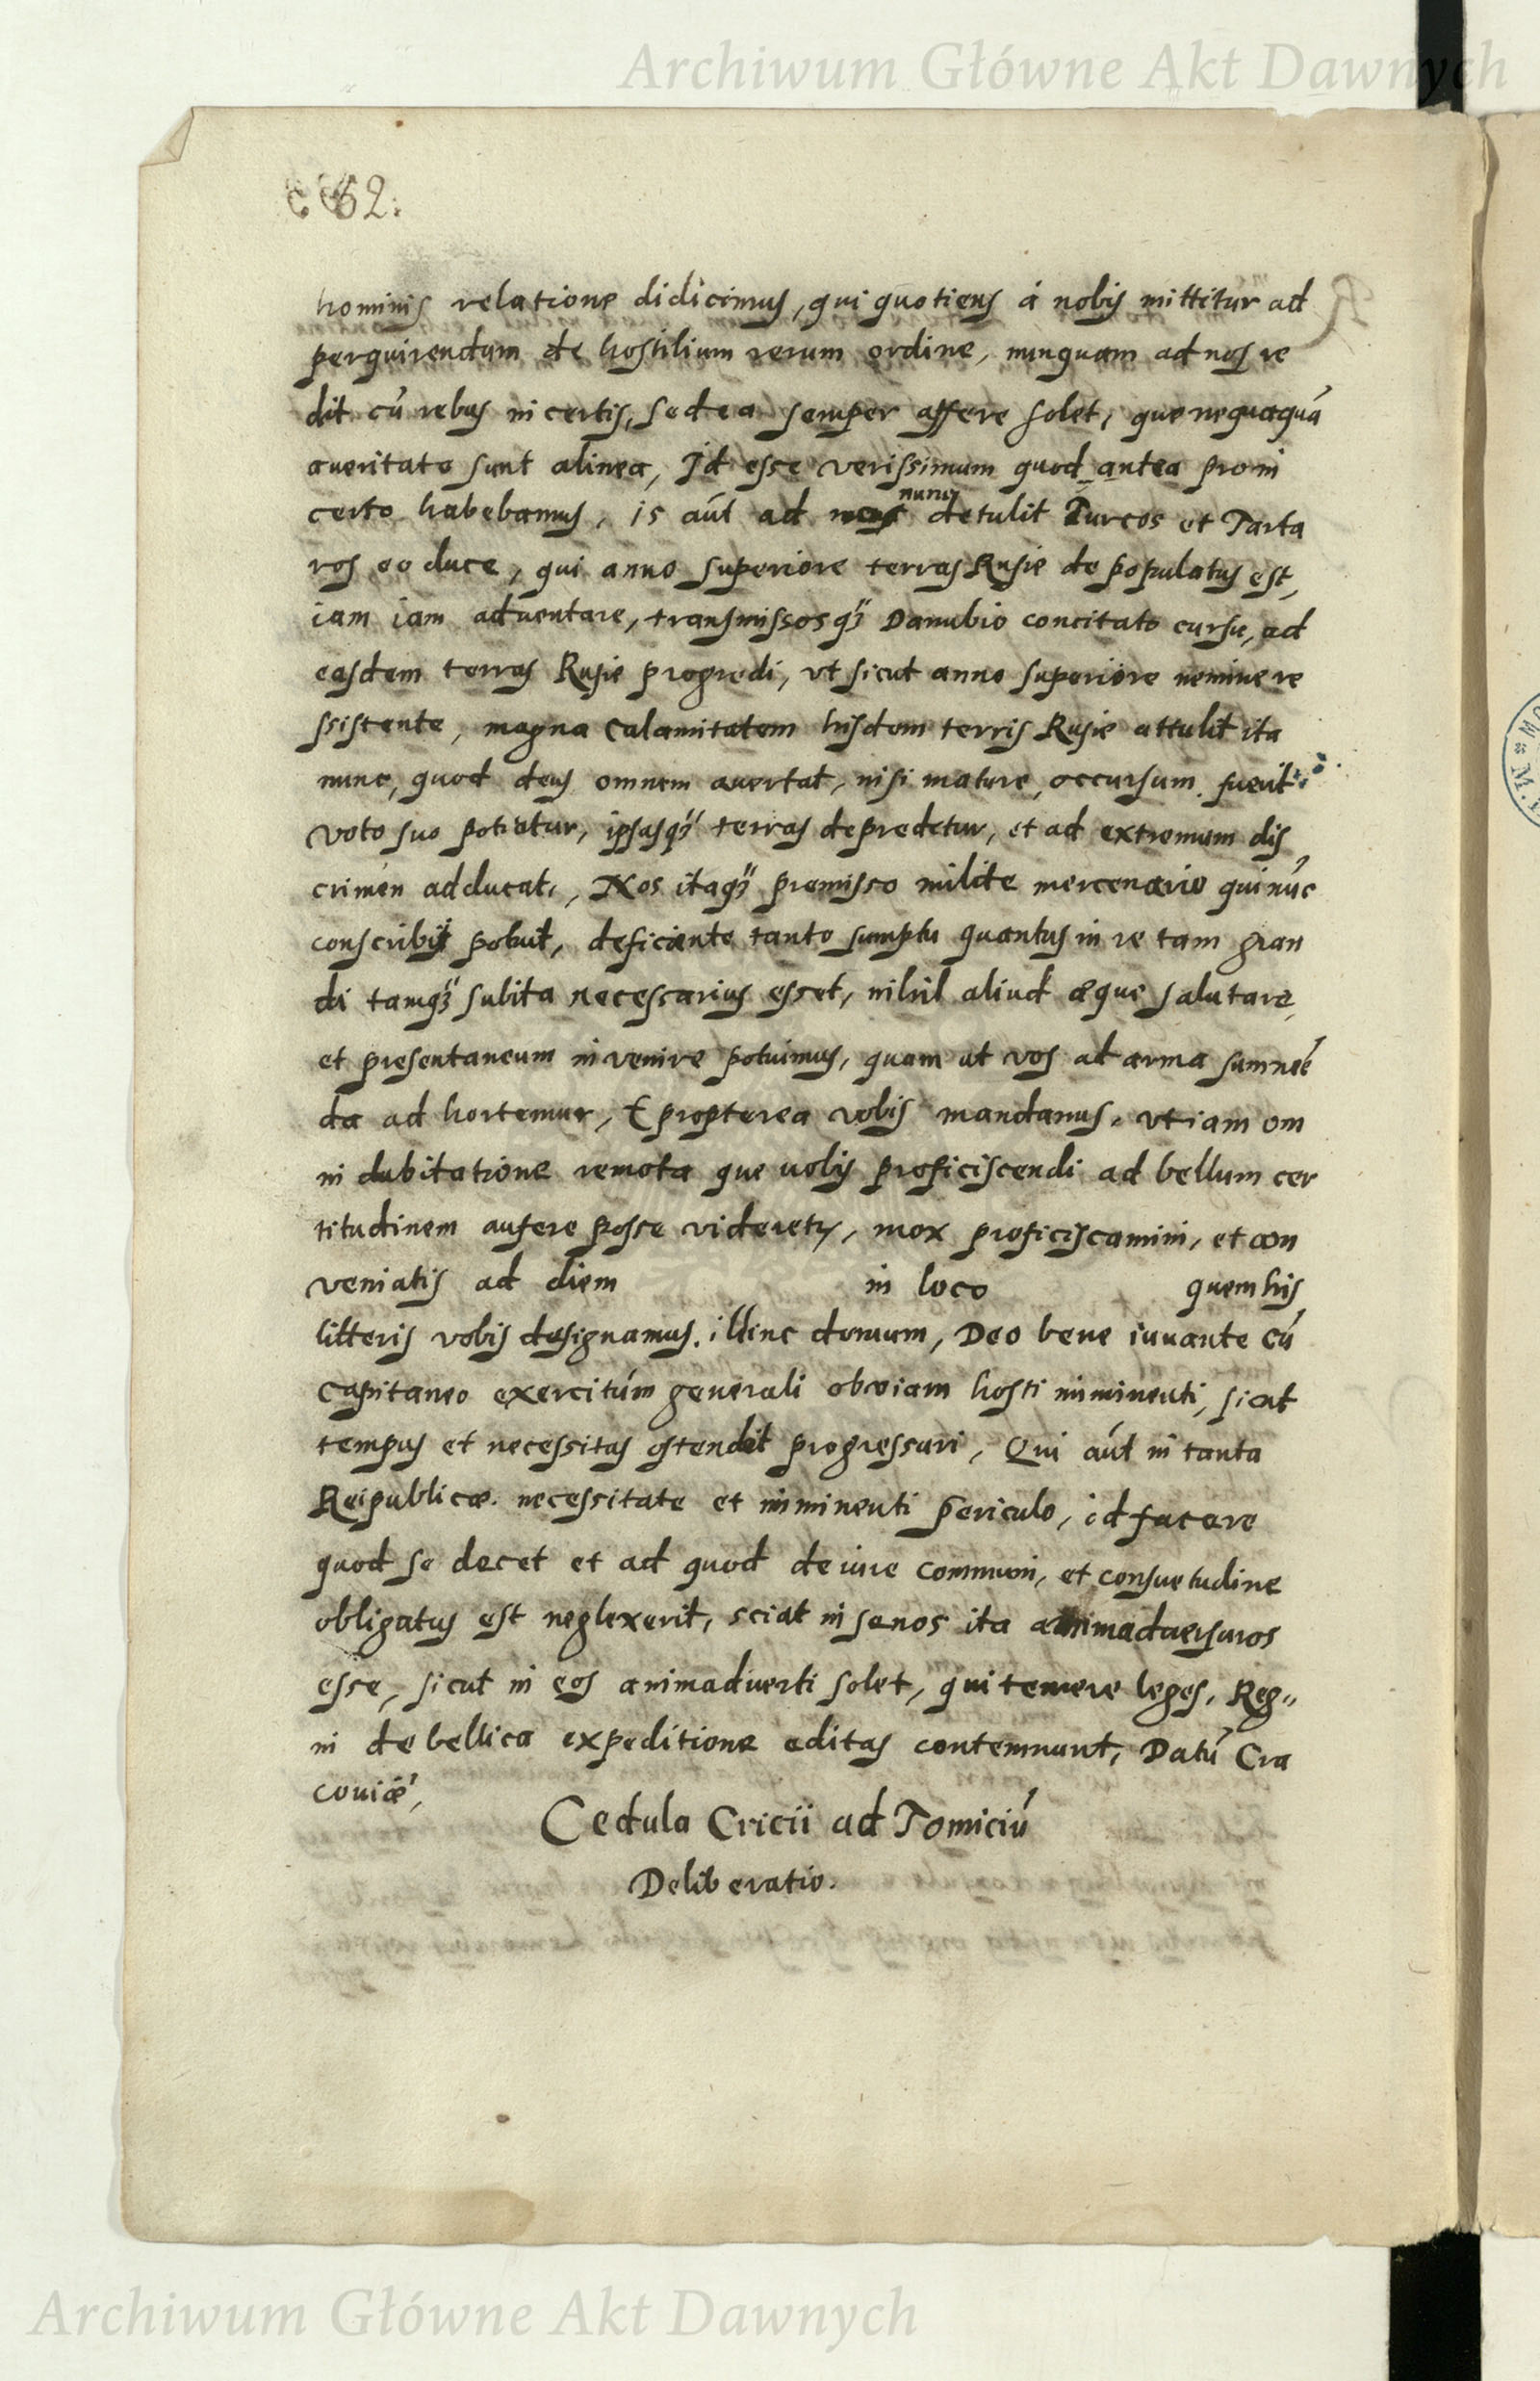 Archiwum Główne Akt Dawnych
62.
hominis relatione didicimus, qui quotiens á nobis mittitur ad
perquirendum de hostilium rerum ordine, nunquam ad nos re
dit cū rebus incertis, sed ea semper affere solet, que nequaquā
a veritate sunt alinea, Id esse verissimum quod antea pro in
certo habebamus, is aūt ad nunc detulit Turcos et Tarta
ros eo duce, qui anno superiore terras Rusie de populatus est,
iam iam aduentare, transmissosq3 Danubio concitato cursu, ad
easdem terras Rusie progredi, vt sicut anno superiore nemine re
ssistente, magna Calamitatem hisdem terris Rusie attulit ita
nunc, quod deus omnem auertat, nisi mature, occursum fuerit
voto suo potiatur, ipsasq3 terras depredetur, et ad extremum dis
crimen adducat, Nos itaq3 premisso milite mercenario qui nūc
conscribi potuit, deficiente tanto sumptu quantus in re tam gran
di tamq3 subita necessarius esset, nihil aliud æque salutare,
et presentaneum invenire potuimus, quam ut vos ad arma sumnē
da ad hortemur, Et propterea vobis mandamus, vt iam om
ni dubitatione remota que uobis proficiscendi ad bellum cer
titudinem aufere posse videretur, mox proficiscamini, et con
veniatis ad diem in loco quem his
litteris vobis designamus, illinc demum, Deo bene iuuante cū
Capitaneo exercitúm generali obviam hosti imminenti, sicut
tempus et necessitas ostendet progressuri, Qui aūt in tanta
Reipublicæ necessitate et imminenti periculo, id facere
quod se decet et ad quod de iure communi, et consuetudine
obligatus est neglexerit, sciat in se nos ita animaduersuros
esse, sicut in eos animaduerti solet, qui temere leges, Reg„
ni de bellica expeditione editas contemnunt, Datū Cra
couiæ,
Cedula Cricii ad Tomiciū
Deliberatio.
Archiwum Główne Akt Dawnych